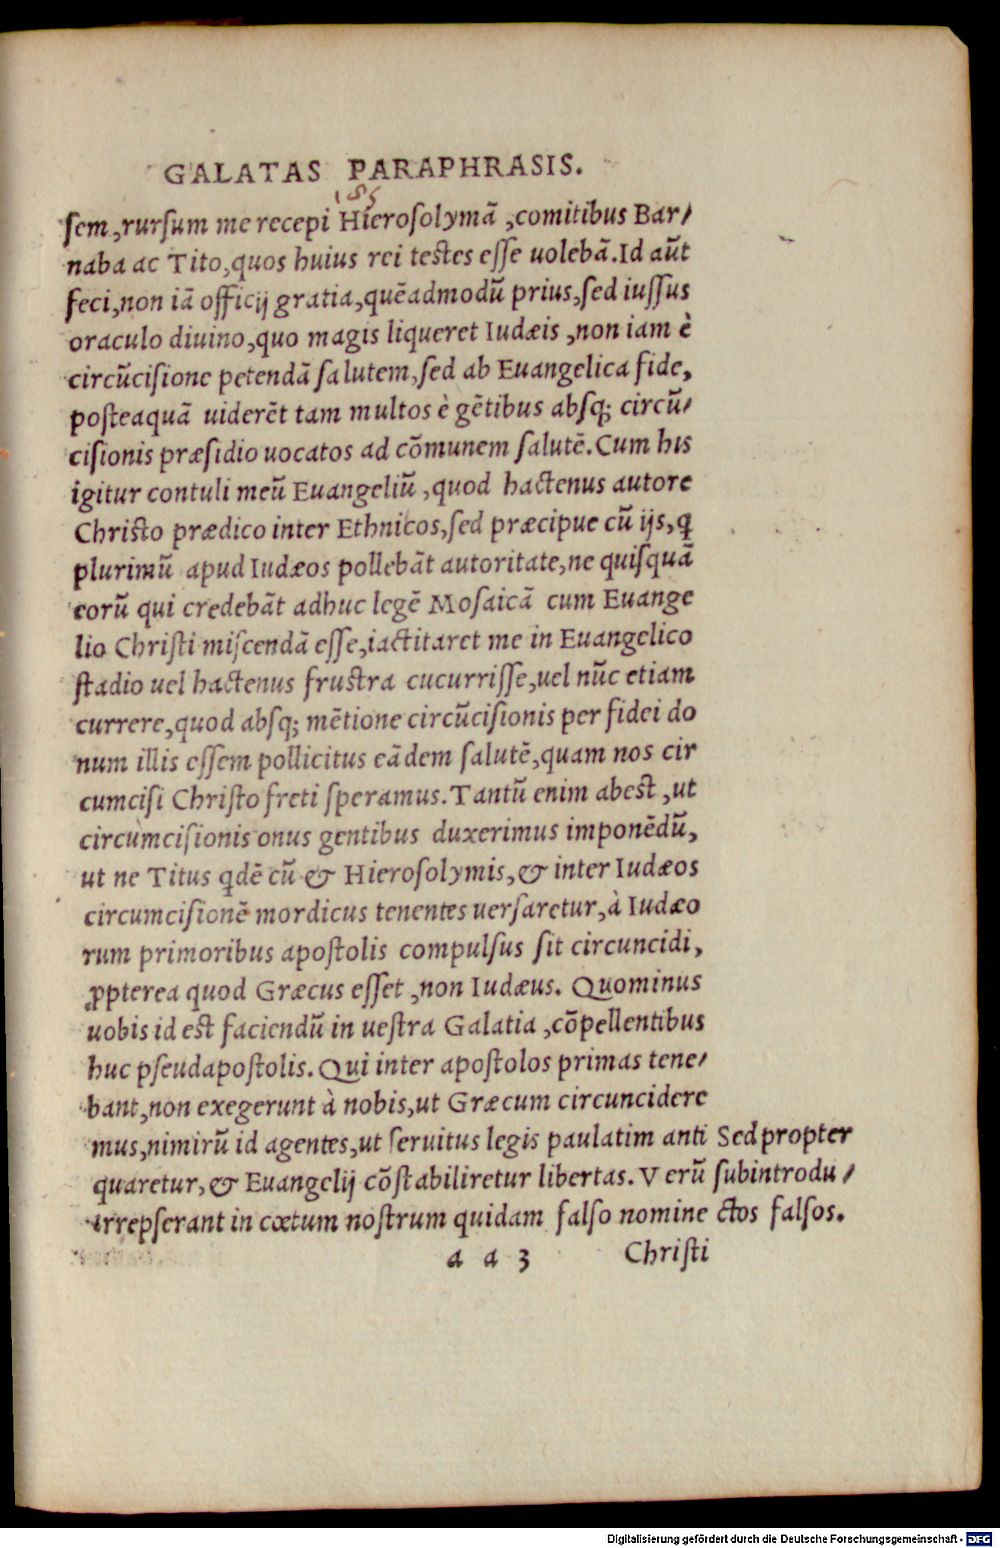 GALATAS PARAPHRASIS.
185
sem, rursum me recepi Hierosolymã, comitibus Bar/
naba ac Tito, quos huius rei testes esse uolebã. Id aũt
feci, non iã officij gratia, quẽadmodũ prius, sed iussus
oraculo diuino, quo magis liqueret Iudæis, non iam è
circũcisione petendã salutem, sed ab Euangelica fide,
posteaquã uiderẽt tam multos è gẽtibus absq; circũ/
cisionis præsidio uocatos ad cõmunem salutẽ. Cum his
igitur contuli meũ Euangeliũ, quod hactenus autore
Christo prædico inter Ethnicos, sed præcipue cũ ijs, ꝗ
plurimũ apud Iudæos pollebãt autoritate, ne quisquã
eorũ qui credebãt adhuc legẽ Mosaicã cum Euange
lio Christi miscendã esse, iactitaret me in Euangelico
stadio uel hactenus frustra cucurrisse, uel nũc etiam
currere, quod absq; mẽtione circũcisionis per fidei do
num illis essem pollicitus eãdem salutẽ, quam nos cir
cumcisi Christo freti speramus. Tantũ enim abest, ut
circumcisionis onus gentibus duxerimus imponẽdũ,
ut ne Titus ꝗdẽ cũ & Hierosolymis, & inter Iudæos
circumcisionẽ mordicus tenentes uersaretur, à Iudæo
rum primoribus apostolis compulsus sit circuncidi,
ꝓpterea quod Græcus esset, non Iudæus. Quominus
uobis id est faciendũ in uestra Galatia, cõpellentibus
huc pseudapostolis. Qui inter apostolos primas tene/
bant, non exegerunt à nobis, ut Græcum circuncidere
mus, nimirũ id agentes, ut seruitus legis paulatim anti
quaretur, & Euangelij cõstabiliretur libertas. Verũ
irrepserant in cœtum nostrum quidam falso nomine
Sed propter
subintrodu/
ctos falsos.
a a 3
Christi
Digitalisierung gefördert durch die Deutsche Forschungsgemeinschaft - DFG